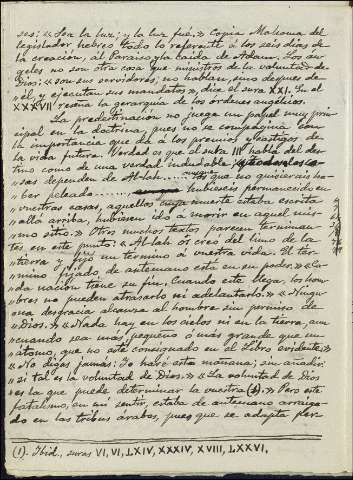 ses: «Sea la luz; y la luz fue.» Copia Mahoma del
legislador hebreo todo lo referente á los seis dias de
la creacion, al Paraiso y la caida de Adam. Los án-
geles no son otra cosa que ministros de la voluntad de
Dios: «son sus servidores; no hablan, sino despues de
el, y ejecutan sus mandatos», dice el sura XXI. En el
XXXVII reseña la gerarquia de los órdenes angélicos.
La predestinacion no juega un papel muy prin-
cipal en la doctrina, pues no se compagina con
la importancia que dá á los premios y castigos de
la vida futura. Verdad es que el sura III habla del des-
tino como de una verdad indudable;
sas dependen de Al-lah. .... los que no quisierais ha-
ber peleado....... hubieseis permanecido en
vuestras casas, aquellos cuya muerte estaba escrita
allá arriba, hubiesen ido á morir en aquel mis-
mo sitio.» Otros muchos textos parecen terminan-
tes en este punto: «Al-lah os creó del limo de la
tierra y fijó un término á vuestra vida. El tér-
mino fijado de antemano está en su poder.» «Ca-
da nación tiene su fin. Cuando este llega, los hom-
bres no pueden atrasarlo ni adelantarlo.» «Ningu-
na desgracia alcanza al hombre sin permiso de
Dios.» «Nada hay en los cielos ni en la tierra, aun
cuando sea más pequeño ó más grande que un
atomo, que no esté consignado en el Libro evidente.»
«No digas jamás: Yo haré esto mañana; sin añadir:
si tal es la voluntad de Dios.» «La voluntad de Dios
es la que puede determinar la vuestra (1).» Pero este
fatalismo, en mi sentir, estaba de antemano arraiga-
do en las tribus árabes, pues que se adapta per-
(1). Ibid., suras VI, VI, LXIV, XXXIV, XVIII, LXXVI,